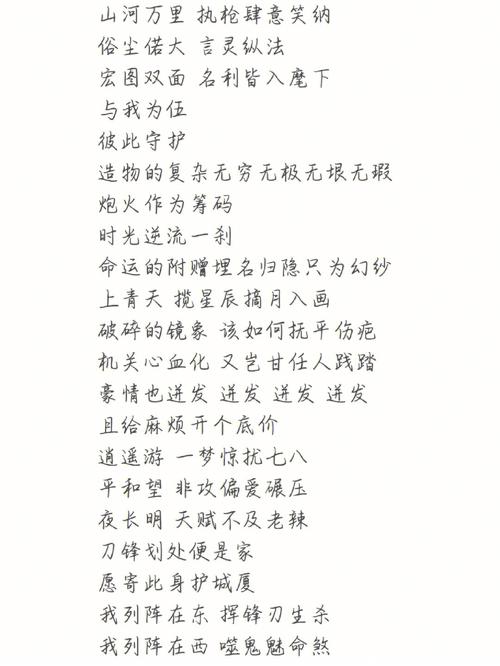 山河万里 执枪肆意笑纳
俗尘偌大 言灵纵法
宏图双面 名利皆入麾下
与我为伍
彼此守护
造物的复杂无穷无极无垠无瑕
炮火作为筹码
时光逆流一刹
命运的附赠埋名归隐只为幻纱
上青天 揽星辰摘月入画
破碎的镜象 该如何抚平伤疤
机关心血化 又岂甘任人践踏
豪情也迸发 迸发 迸发 迸发
且给麻烦开个底价
逍遥游 一梦惊扰七八
平和望 非攻偏爱碾压
夜长明 天赋不及老辣
刀锋划处便是家
愿寄此身护城厦
我列阵在东 挥锋刃生杀
我列阵在西 噬鬼魅命煞